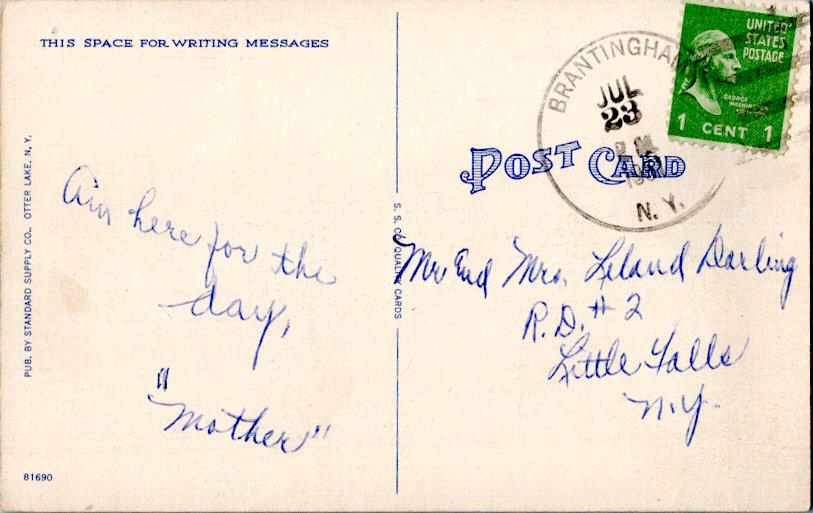 THIS SPACE FOR WRITING MESSAGES
PUB. BY STANDARD SUPPLY CO., OTTER LAKE, N. Y.
Am here for the
day,
"Mother"
81690
S. S. CO. QUALITY CARDS
POST CARD
BRANTINGHAM
JUL
23
N. Y.
UNITED
STATES
POSTAGE
GEORGE
WASHINGTON
1 CENT 1
Mr End Mrs. Leland Darling
R.D. # 2
Little Falls
N.Y.